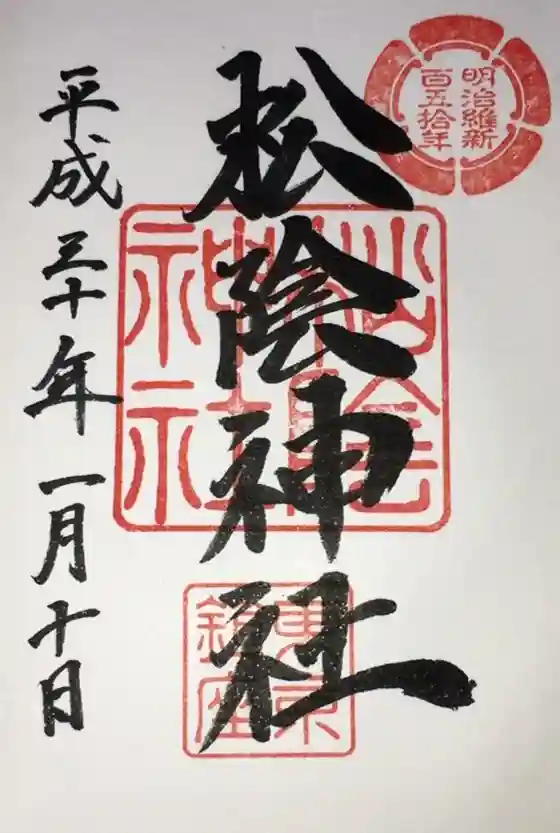 明治維新
百五拾年
松陰神社
松陰神社
東京
鎮座
平成三十年一月十日